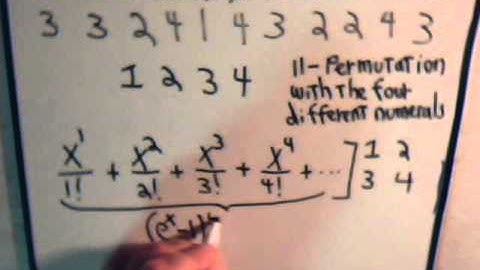 3 3 2 4 1 4 3 2 2 4 3
1 2 3 4
11-Permutation
with the four
different numerals
x^1/1! + x^2/2! + x^3/3! + x^4/4! + ... ] 1 2
3 4
(e^x-1)